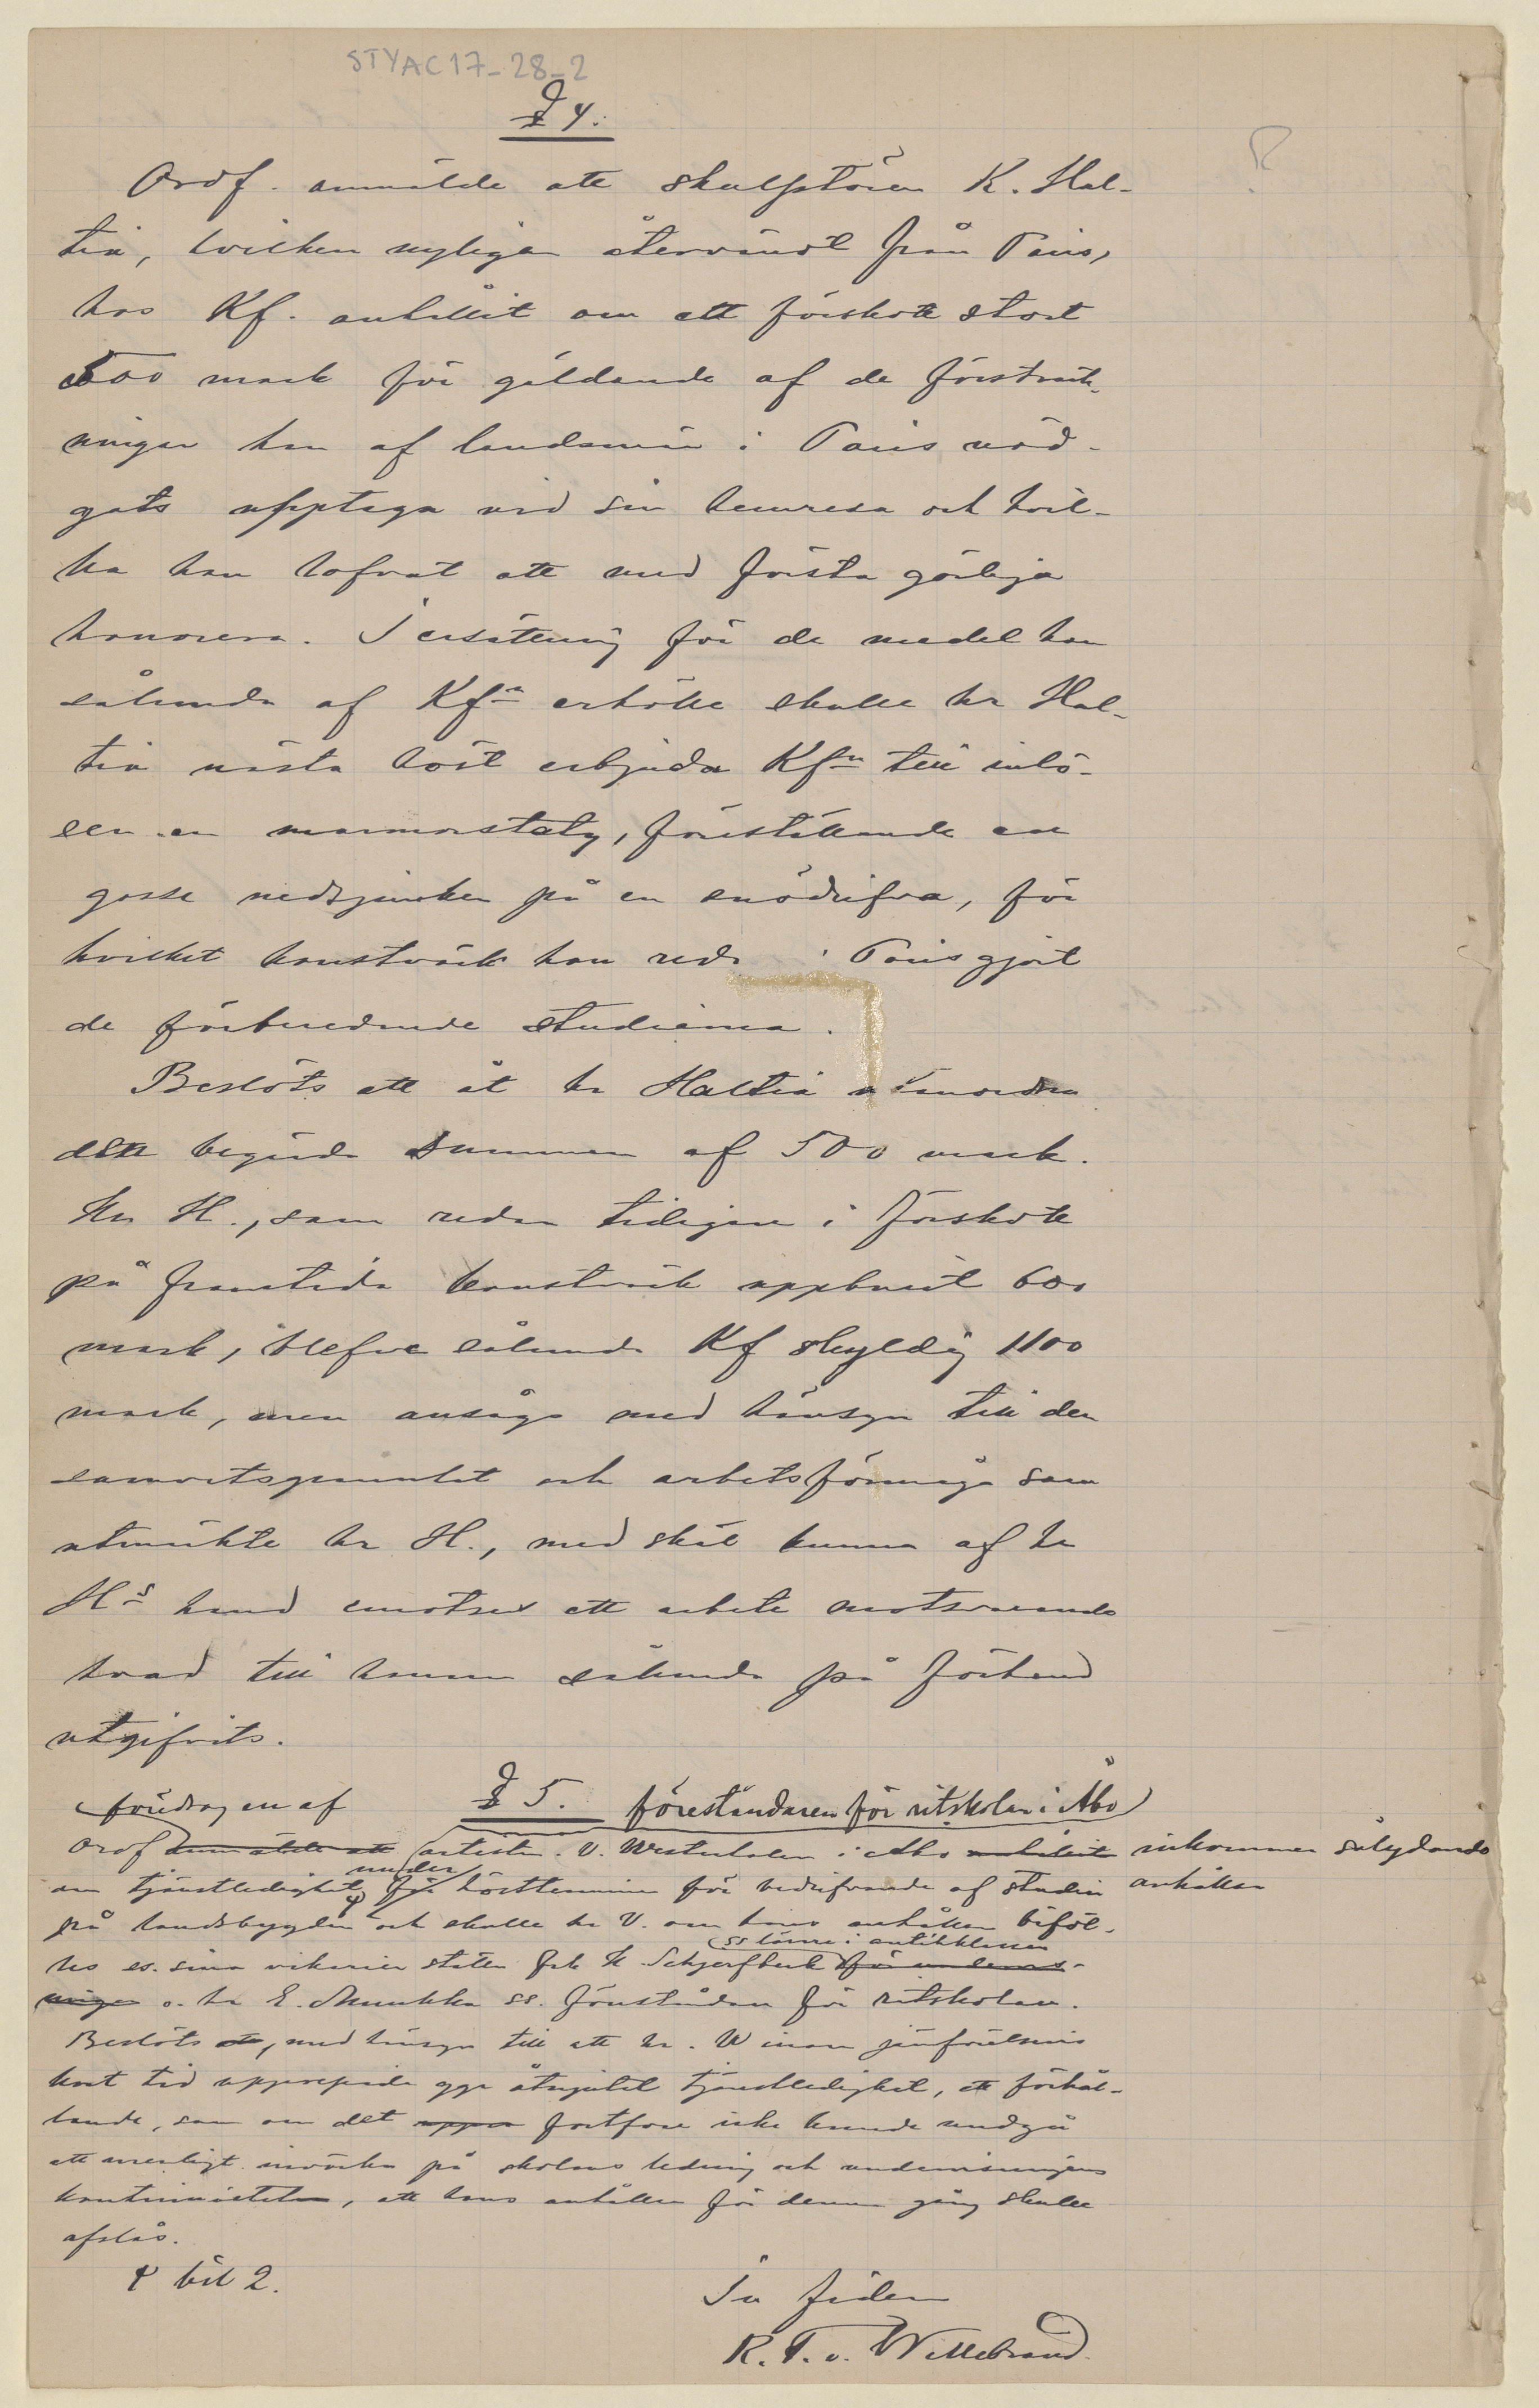 STYAC17-28-2
§ 4.
Ordf. anmälde att skulptören K. Hal-
tia, hvilken nyligen återvändt från Paris,
hos Kf. anhållit om ett förskott stort
500 mark för gäldande af de försträck-
ningar han af landsmän i Paris nöd-
gats upptaga vid sin hemresa och hvil-
ka han lofvat att med första görliga
honorera. I ersättning för de medel han
sålunda af Kfn erhölle skulle hr Hal-
tia nästa höst erbjuda Kfn till inlö-
sen en marmorstaty, föreställande en
gosse nedsjunken på en snödrifva, för
hvilket konstvärk han reda i Paris gjort
de förberedande studierna.
Beslöts att åt hr Haltia utanordna
den begärda summan af 500 mark.
Hr H., som redan tidigare i förskott
på framtida konstvärk uppburit 600
mark, blefve sålunda Kf skyldig 1100
mark, men ansågs med hänsyn till den
samvetsgrannhet och arbetsförmåga som
utmärkte hr H., med skäl kunna af hr
Hs hand emotses ett arbete motsvarande
hvad till honom sålunda på förhand
utgifvits.
§ 5.
föredrog en af föreståndaren för ritskolan i Åbo
Ordf anmälde att artisten V. Westerholm i Åbo anhållit inkommen sålydande
om tjänstledighet för under höstterminen för bedrifvande af studier anhållan
på landsbygden och skulle hr V. om hans anhållan biföl-
les ss. sina vikarier ställa frk H. Schjerfbeck för undervis- ss lärare i antikklassen
ningen o. hr E. Muukka ss. föreståndare för ritskolan.
Beslöts att, med hänsyn till att hr. W inom jämförelsevis
kort tid upprepade ggr åtnjutit tjänstledighet, ett förhål-
lande, som om det uppre fortfore icke kunde undgå
att menligt invärka på skolans ledning och undervisningens
kontinuitet, att hans anhållan för denna gång skulle
afslås.
φ bil 2.
In fidem
R. F. v. Willebrand.